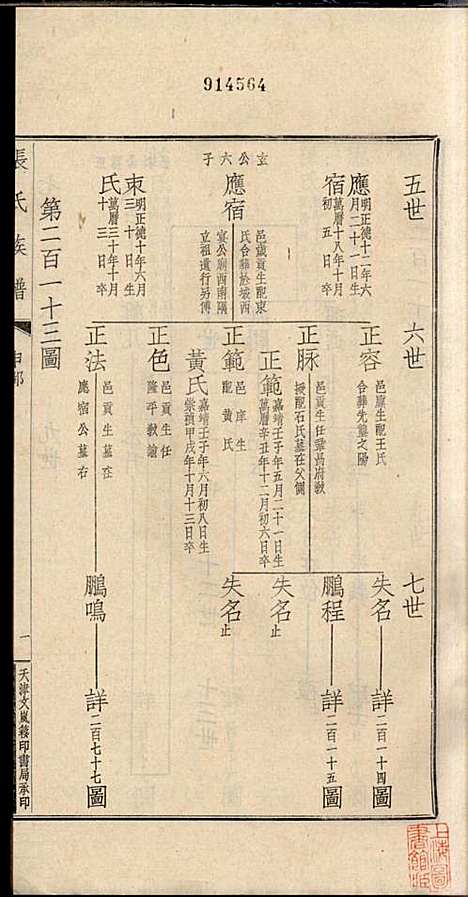 914564
五世
六世
七世
應宿
明正德十二年六
月二十一日生
萬曆十八年十月
初五日卒
玄公六子
應宿
邑歲貢生配束
氏合葬於城西
宴公廟西南隅
立祖遺行另傳
束氏
明正德十年六月
三十日生
萬曆三十年十月
十三日卒
第二百一十三圖
正容
邑庠生配王氏
合葬先塋之陽
正脉
邑貢生任鞏昌府教
授配石氏墓在父側
正範
嘉靖壬子年五月二十一日生
萬曆辛丑年十二月初六日卒
正範
邑庠生
配黃氏
黃氏
嘉靖壬子年六月初八日生
崇禎甲戌年十月十三日卒
正色
邑貢生任
隆平教諭
正法
邑貢生墓在
應宿公墓右
失名
詳二百一十四圖
鵬程
詳二百一十五圖
失名止
失名止
鵬鳴
詳二百七十七圖
張氏族譜
申部
一
天津文嵐簃印書局承印
上海圖書館藏